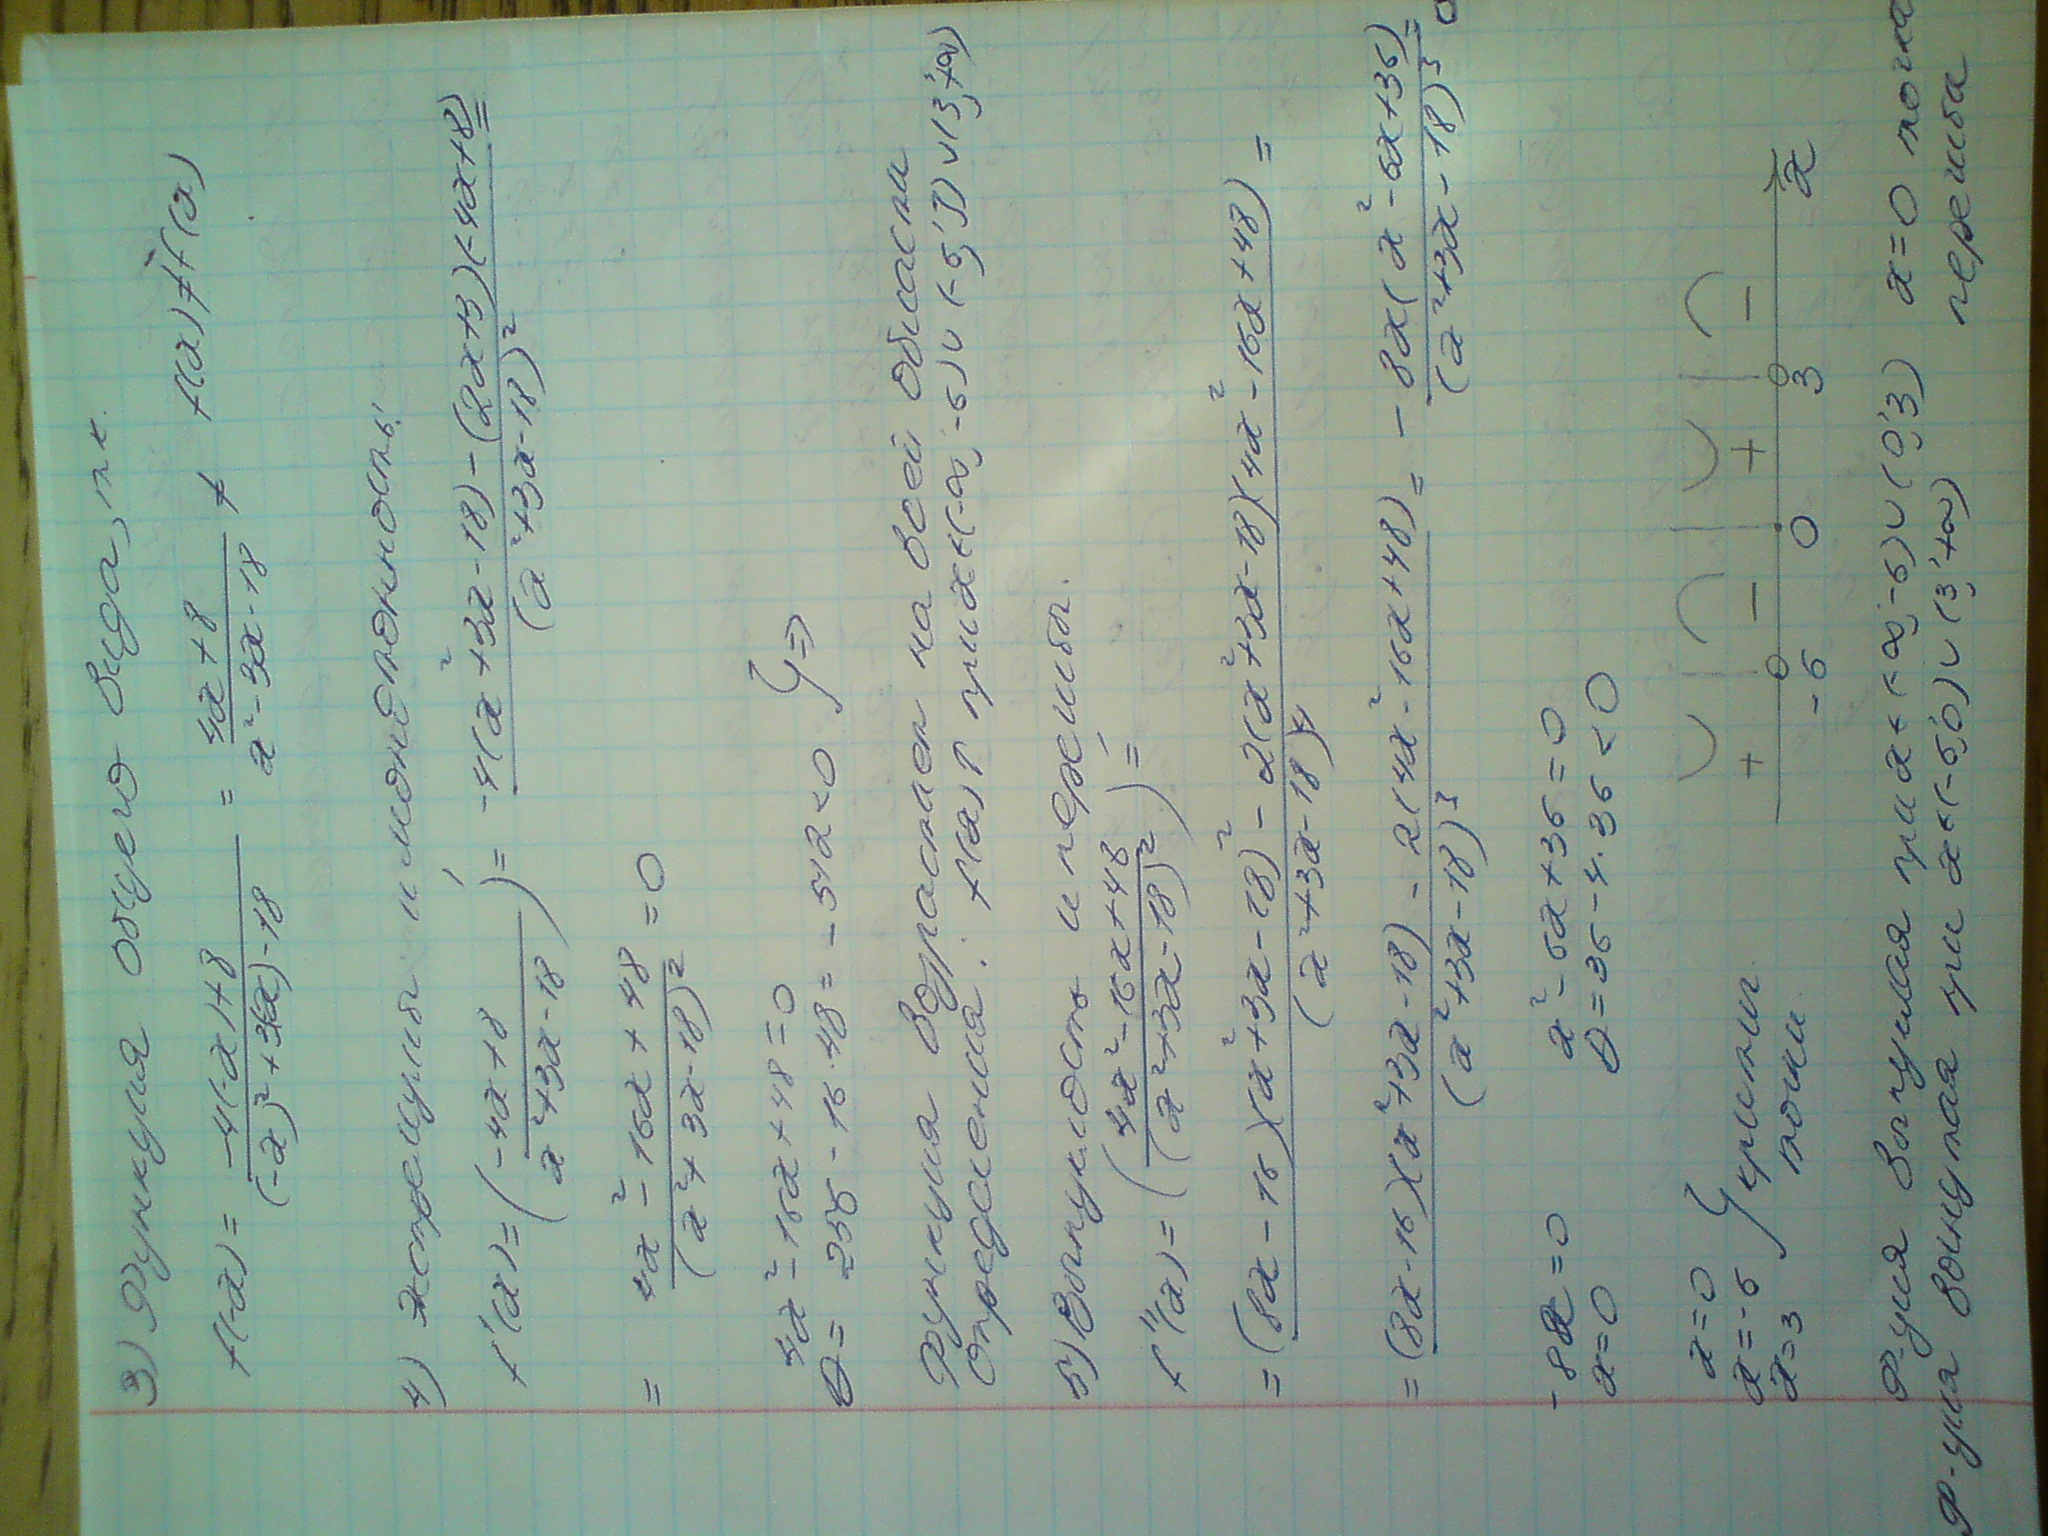 3) Функция общего вида, т.к.
f(-x) = (-4(-x)+8)/((-x)²+3(-x)-18) = (4x+8)/(x²-3x-18) ≠ f(x) ≠ -f(x)
4) Экстремумы и монотонность:
f'(x) = ((-4x+8)/(x²+3x-18))' = (-4(x²+3x-18)-(2x+3)(-4x+8))/(x²+3x-18)² =
= (4x²-16x+48)/(x²+3x-18)² = 0
4x²-16x+48=0
D = 256-16·48 = -512<0 } =>
Функция возрастает на всей области
определения. f(x)↑ при x∈(-∞;-6)∪(-6;3)∪(3;+∞)
5) Выпуклость и перегибы.
f''(x) = ((4x²-16x+48)/(x²+3x-18)²)' =
= ((8x-16)(x²+3x-18)²-2(x²+3x-18)(4x²-16x+48))/(x²+3x-18)⁴ =
= ((8x-16)(x²+3x-18)-2(4x²-16x+48))/(x²+3x-18)³ = -8x(x²-6x+36)/(x²+3x-18)³ = 0
-8x=0 x²-6x+36=0
x=0 D=36-4·36<0
x=0
x=-6
x=3 } критич.
точки.
+ - + -
-6 0 3 x
Ф-ция выпуклая при x∈(-∞;-6)∪(0;3) x=0 точка
Ф-ция вогнутая при x∈(-6;0)∪(3;+∞) перегиба